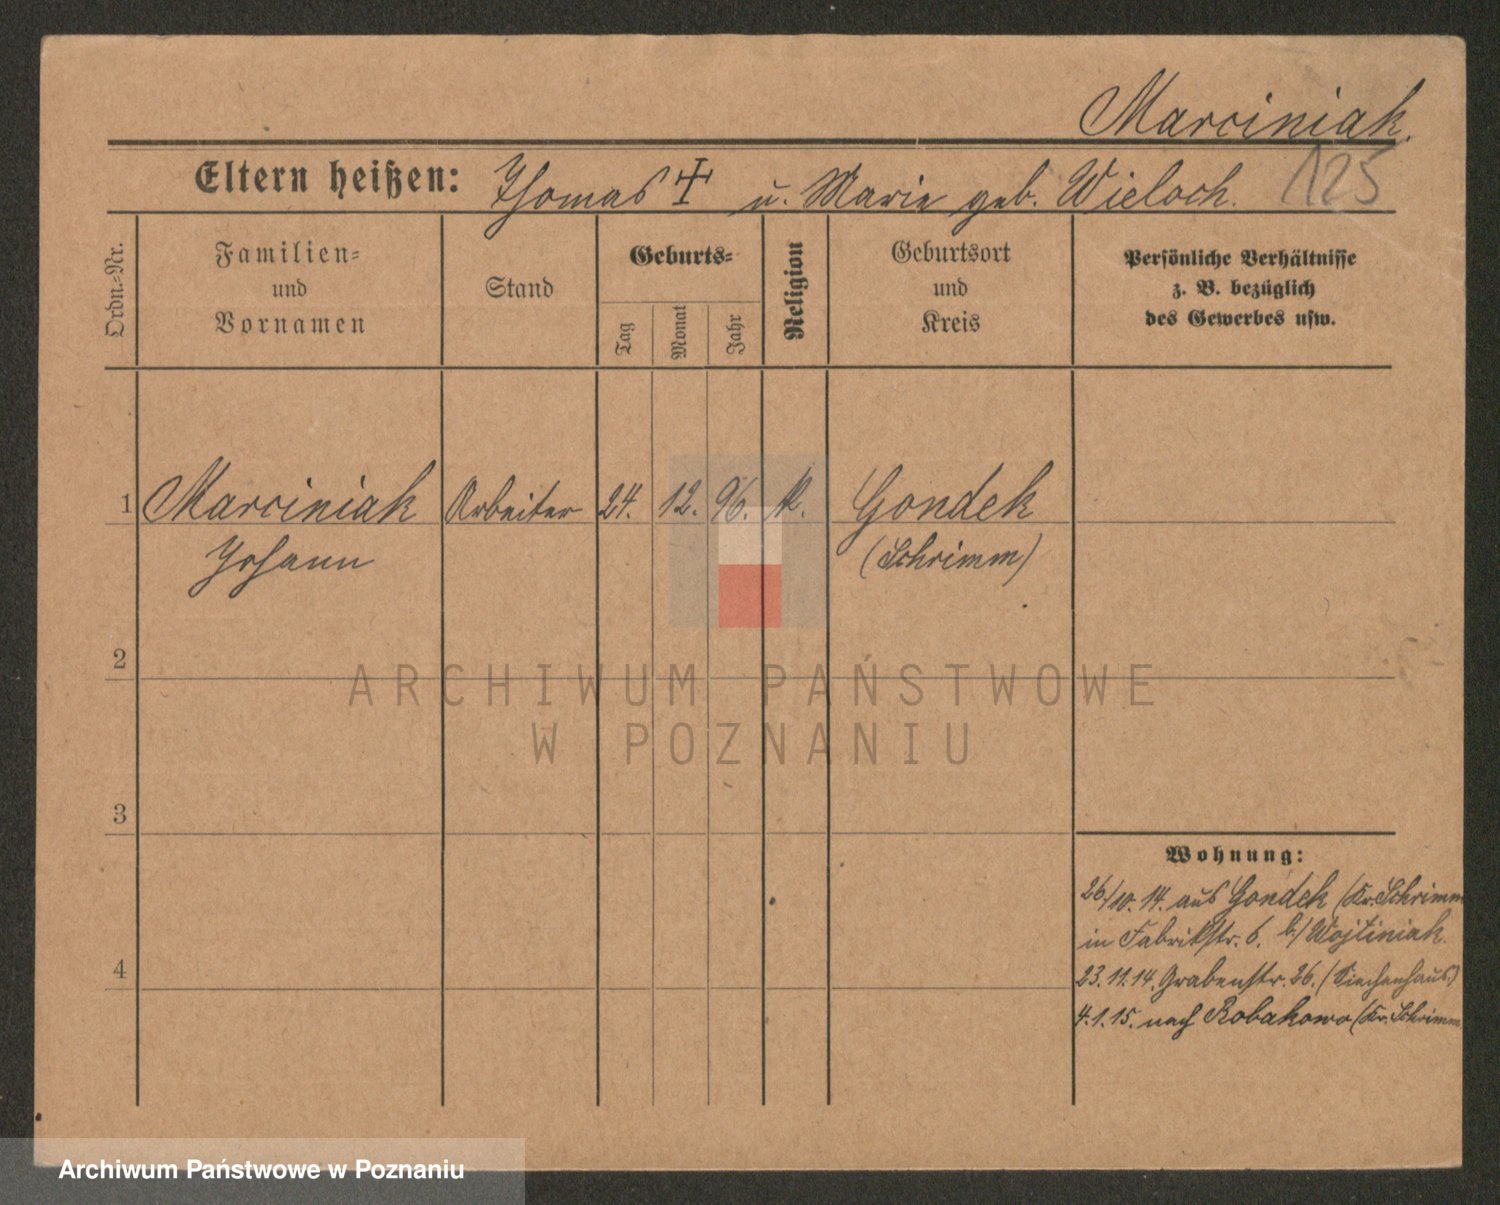 Marciniak.
125
Eltern heißen: Thomas ☩ u. Marie geb. Wieloch.
Ordn.-Nr.
Familien-
und
Vornamen
Stand
Geburts-
Tag
Monat
Jahr
Religion
Geburtsort
und
Kreis
Persönliche Verhältnisse
z. B. bezüglich
des Gewerbes usw.
1 Marciniak Arbeiter 24. 12. 96. k. Gondek
Johann (Schrimm)
2
3
4
Wohnung:
26/10.14. aus Gondek (Kr. Schrimm
in Fabrikstr. 6. b/ Wojtiniak.
23.11.14. Grabenstr. 26. (Siechenhaus)
4.1.15. nach Robakowo (Kr. Schrimm
ARCHIWUM PAŃSTWOWE
W POZNANIU
Archiwum Państwowe w Poznaniu